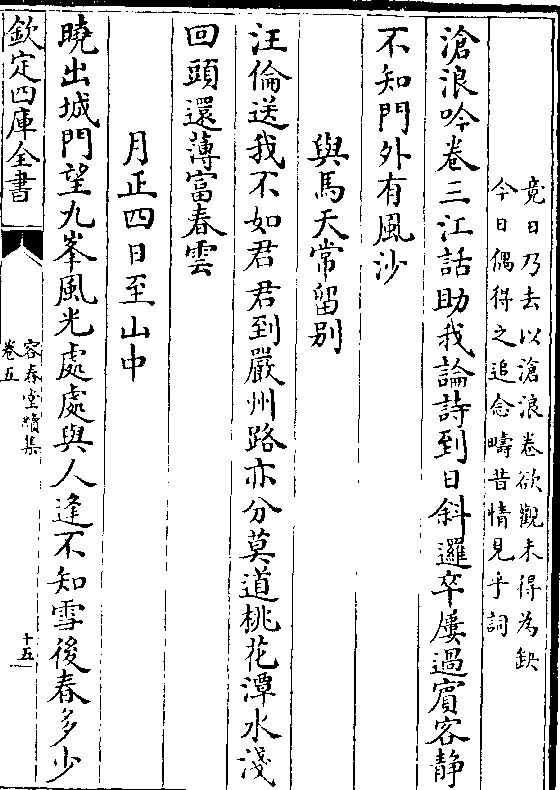 竟日乃去以滄浪卷欲觀未得為缺
今日偶得之追念疇昔情見乎詞
滄浪吟卷三江話助我論詩到日斜邏卒屢過賓客静
不知門外有風沙
與馬天常留别
汪倫送我不如君君到嚴州路亦分莫道桃花潭水淺
回頭還薄富春雲
月正四日至山中
曉出城門望九峯風光處處與人逢不知雪後春多少
欽定四庫全書
容春堂續集
卷五
十五